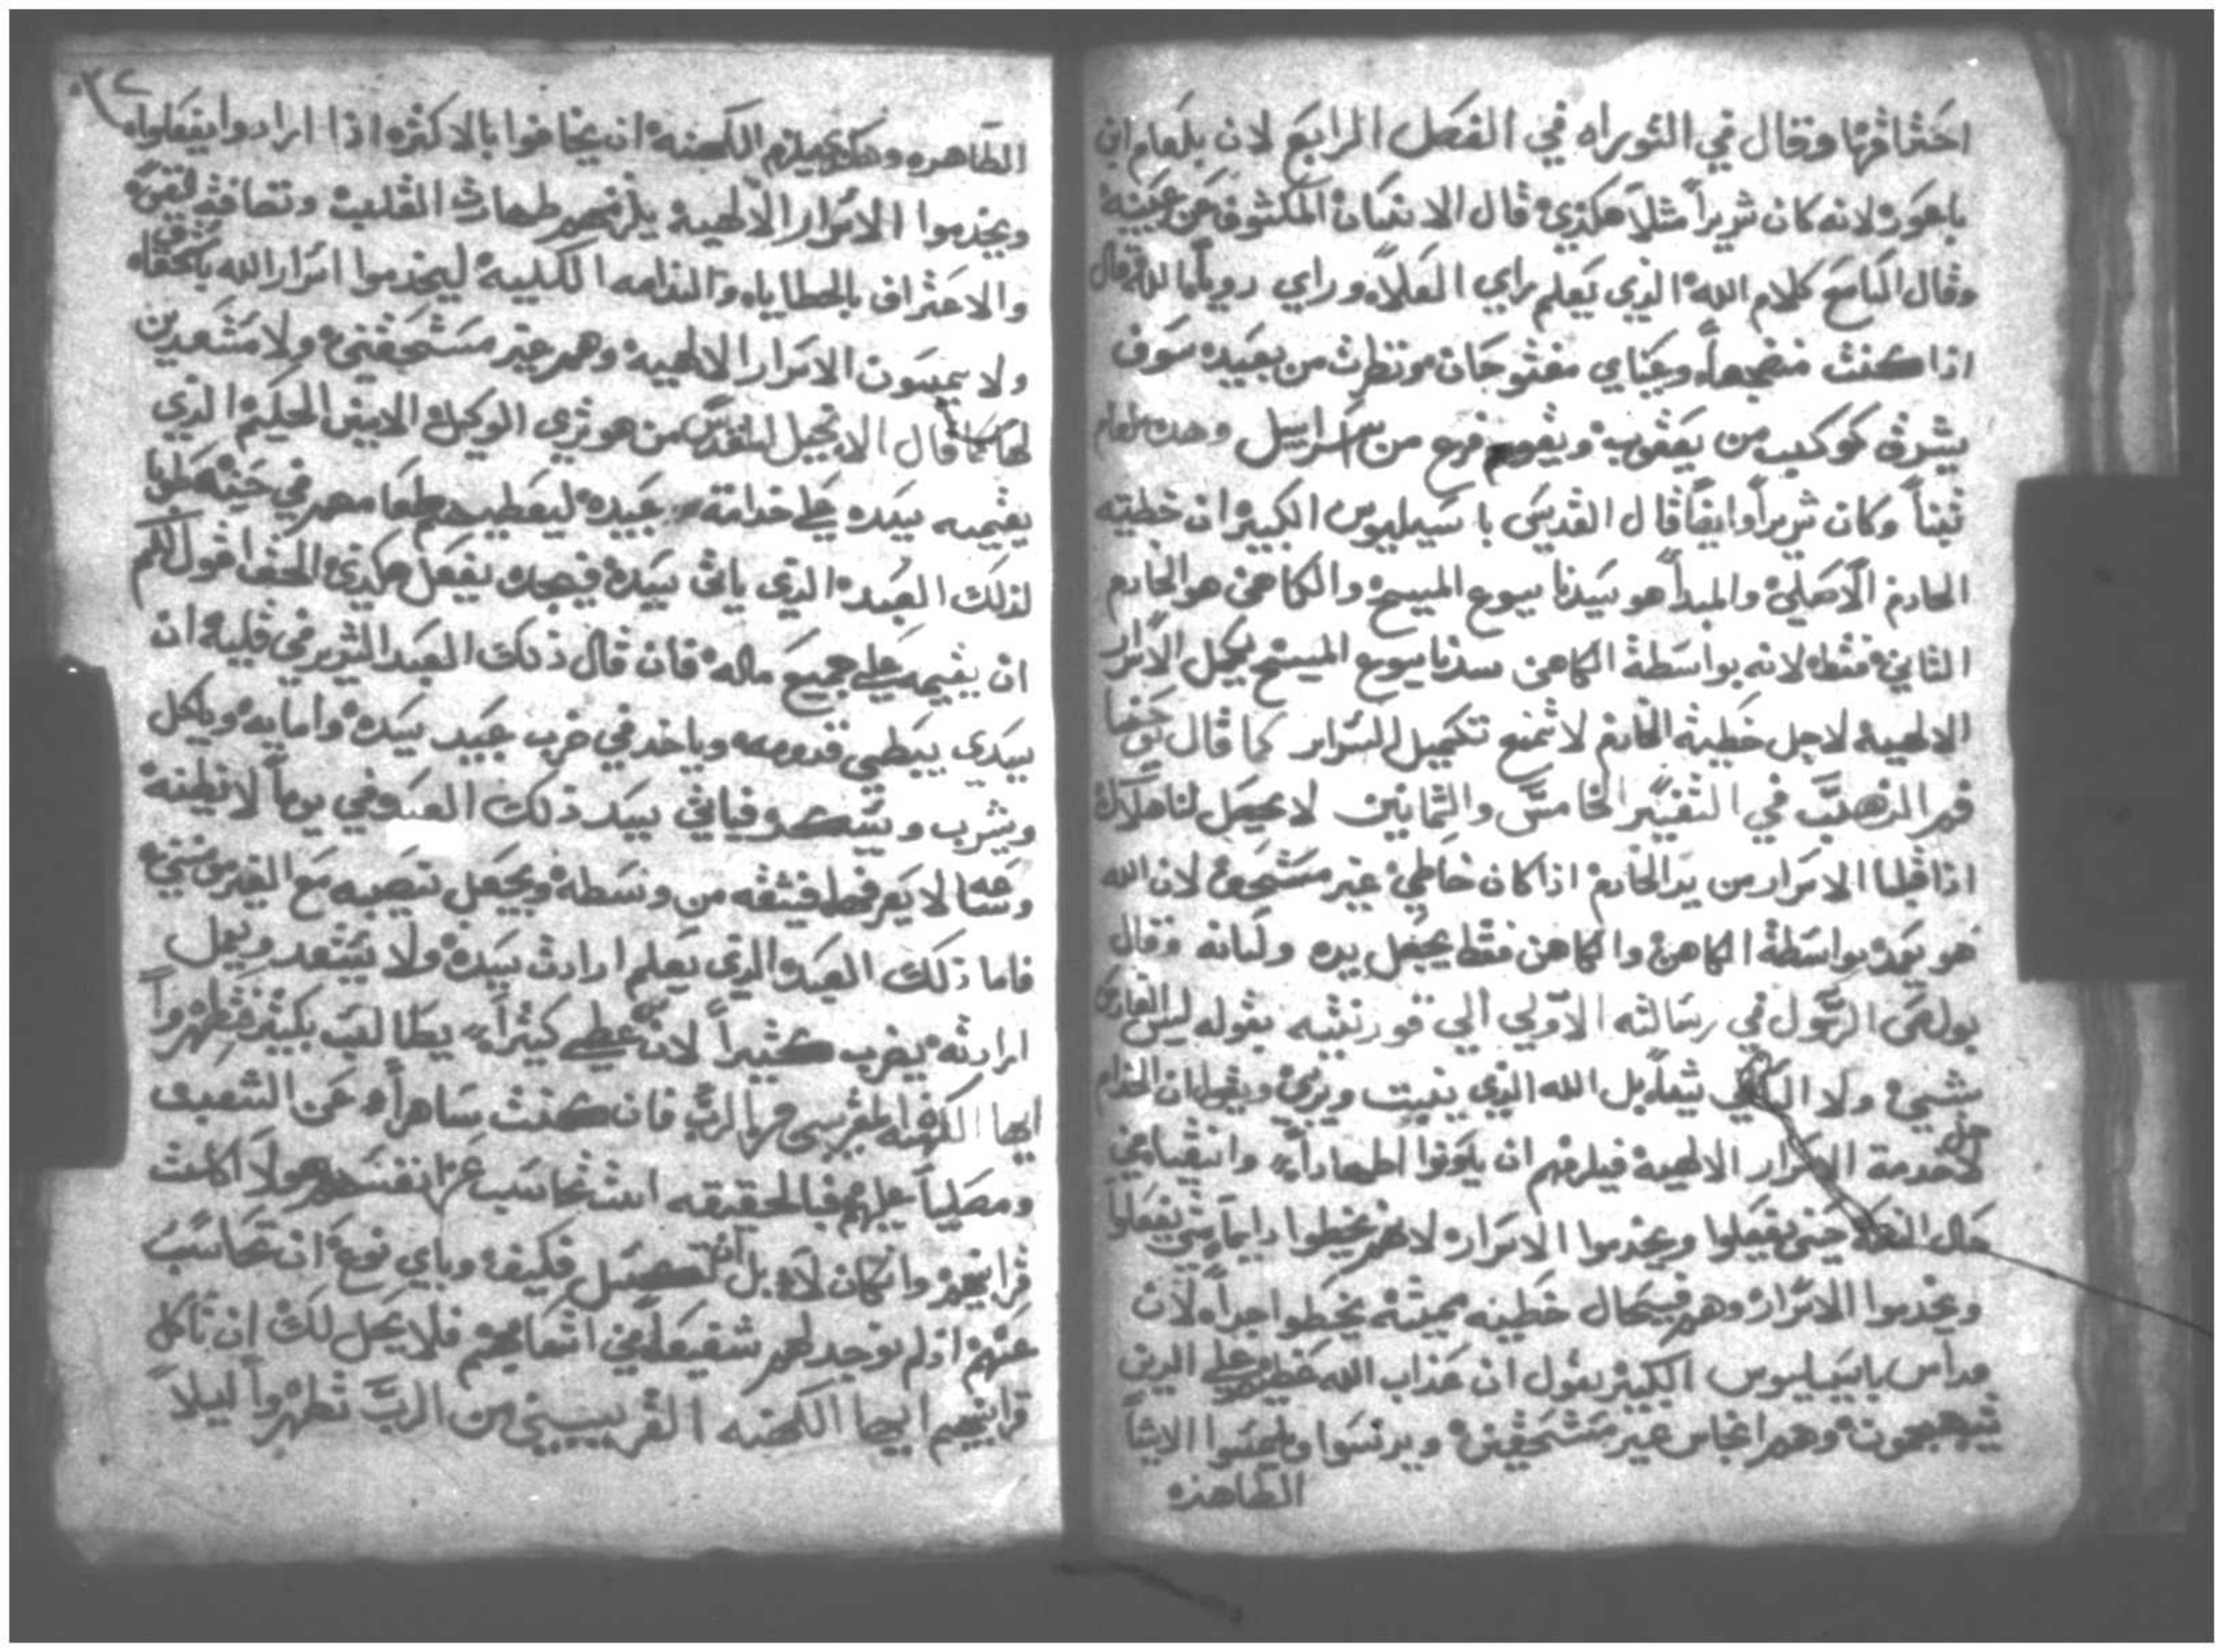 احتراقها وقال في التوراه في الفصل الرابع لان بلعام ابن
باعور لانه كان شريراً مثلاً هكذي قال الانسان المكشوف عن عينيه
وقال السامع كلام الله الذي يعلم راي العلا وراي رويا الله قال
اذا كنت منضجعاً وعيناي مفتوحان ونظرت من بعيد سوف
يشرق كوكب من يعقوب ويقوم فرع من اسراييل وهذه بلعام
تبنا وكان شريراً وايضاً قال القديس باسيليوس الكبير ان خطيته
الخادم الاصلي والمبدا هو سيدنا يسوع المسيح والكاهن هو الخادم
الثاني فقط لانه بواسطة الكاهن سدنا يسوع المسيح يكمل الاسرار
الالهيه لاجل خطية الخادم لا تمنع تكميل السراير كما قال يوحنا
فم الذهب في التفسير الخامس والثمانين لا يحصل لنا هلاك
اذا قبلنا الاسرار من يد الخادم اذا كان خاطي غير مستحق لان الله
هو بواسطة الكاهن والكاهن فقط يجعل يده ولسانه وقال
بولص الرسول في رسالته الاولي الي قورنتيه بقوله ليس الغارس
شيي ولا الساقي شيا بل الله الذي ينبت ويربي ويقول ان الخدام
لخدمة الاسرار الالهيه فيلزمهم ان يكونوا اطهاراً وانقيا في
حال النعمه حتى يفعلوا ويخدموا الاسرار لانهم يخطوا دايماً متي يفعلوا
ويخدموا الاسرار وهم في حال خطيه مميته يخطوا جداً لان
مراس باسيليوس الكبير يقول ان عذاب الله عظيم علي الدين
وهم انجاس غير مستحقين ويدنسوا ويلمسوا الاشيا
الطاهره
الطاهره وهكذي يلزم الكهنه ان يخافوا بالاكثره اذا ارادوا يفعلوا
ويخدموا الاسرار الالهيه يلزمهم طهارت القلب
والاعتراف بالخطاياه والندامه الكليه ليخدموا اسرار الله
ولا يمسون الاسرار الالهيه وهم غير مستحقين ولا مستعدين
لها كما قال الانجيل المقدس من هو تري الوكيل الامين الحكيم الذي
يقيمه سيده علي خدامة عبيده ليعطيهم طعامهم في حينه طوبا
لذلك العبد الذي ياتي سيده فيجده يفعل هكذي الحق اقول لكم
ان يقيمه علي جميع ماله فان قال ذلك العبد الشرير في قلبه ان
سيدي يبطي قدومه وياخد في ضرب عبيد سيده وامايه وياكل
ويشرب ويسكر فياتي سيد ذلك العبد في يوماً لا يظنه
وساعه لا يعرفها فيشقه من وسطه ويجعل نصيبه مع الغير مومنين
فاما ذلك العبد الذي يعلم ارادت سيده ولا يستعد ويعمل
ارادته يضرب كثيراً لان من اعطي كثيراً يطالب بكثير فتطهروا
ايها الكهنه المقربين من الرب فان كنت ساهراً عن الشعب
ومصلياً عليهم فبالحقيقه انت تحاسب عن انفسهم ولا اكلت
قرابينهم وان كان لا بل انت كسل فكيف وباي نوع ان تحاسب
عنهم اذ لم توجد لهم شفيعاً في اتعابهم فلا يحل لك ان تاكل
قرابينهم ايها الكهنه القريبين من الرب تطهروا ليلا